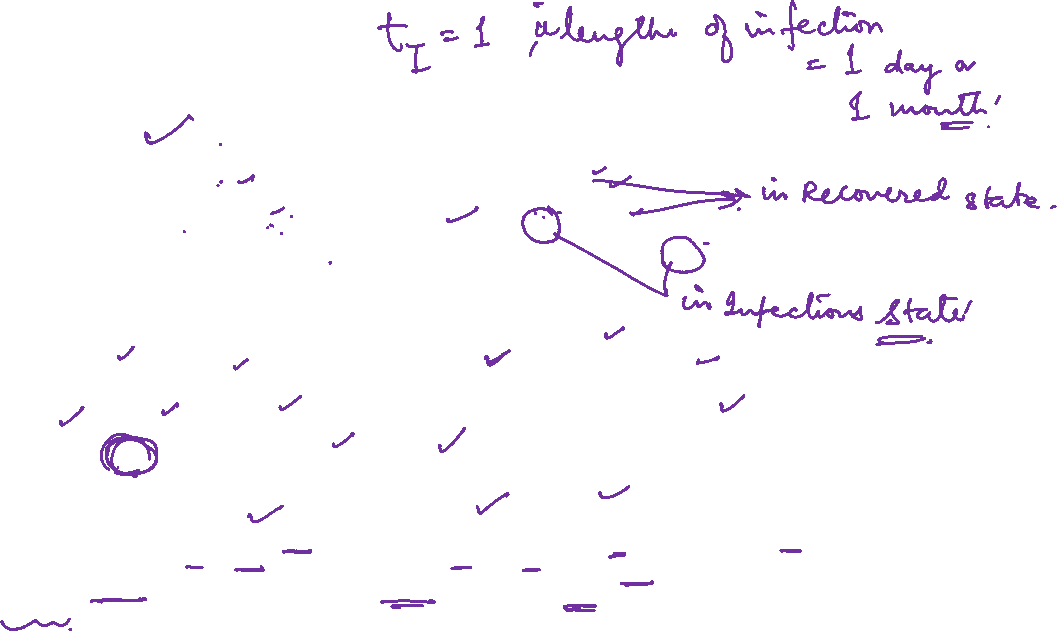 t_I = 1 is length of infection
= 1 day or
1 month.
in Recovered state.
in Infectious state